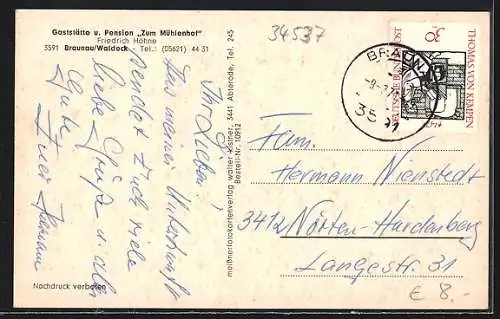 Gaststätte u. Pension „Zum Mühlenhof"
Friedrich Höhne
3591 Braunau/Waldeck Tel.: (05621) 44 31
Ihr Lieben!
Aus meiner Unterkunft
sendet Euch viele
liebe Grüße u. alles
Gute
Euer Hermann
Nachdruck verboten
meißner-fotokartenverlag walter köstner, 3441 Abterode, Tel. 245
Bestell-Nr. 10912
34537
BRAUN
3591
30
THOMAS VON KEMPEN
DEUTSCHE BUNDESPOST
Fam.
Hermann Nienstedt
3412 Nörten-Hardenberg
Langestr. 31
€ 8.-